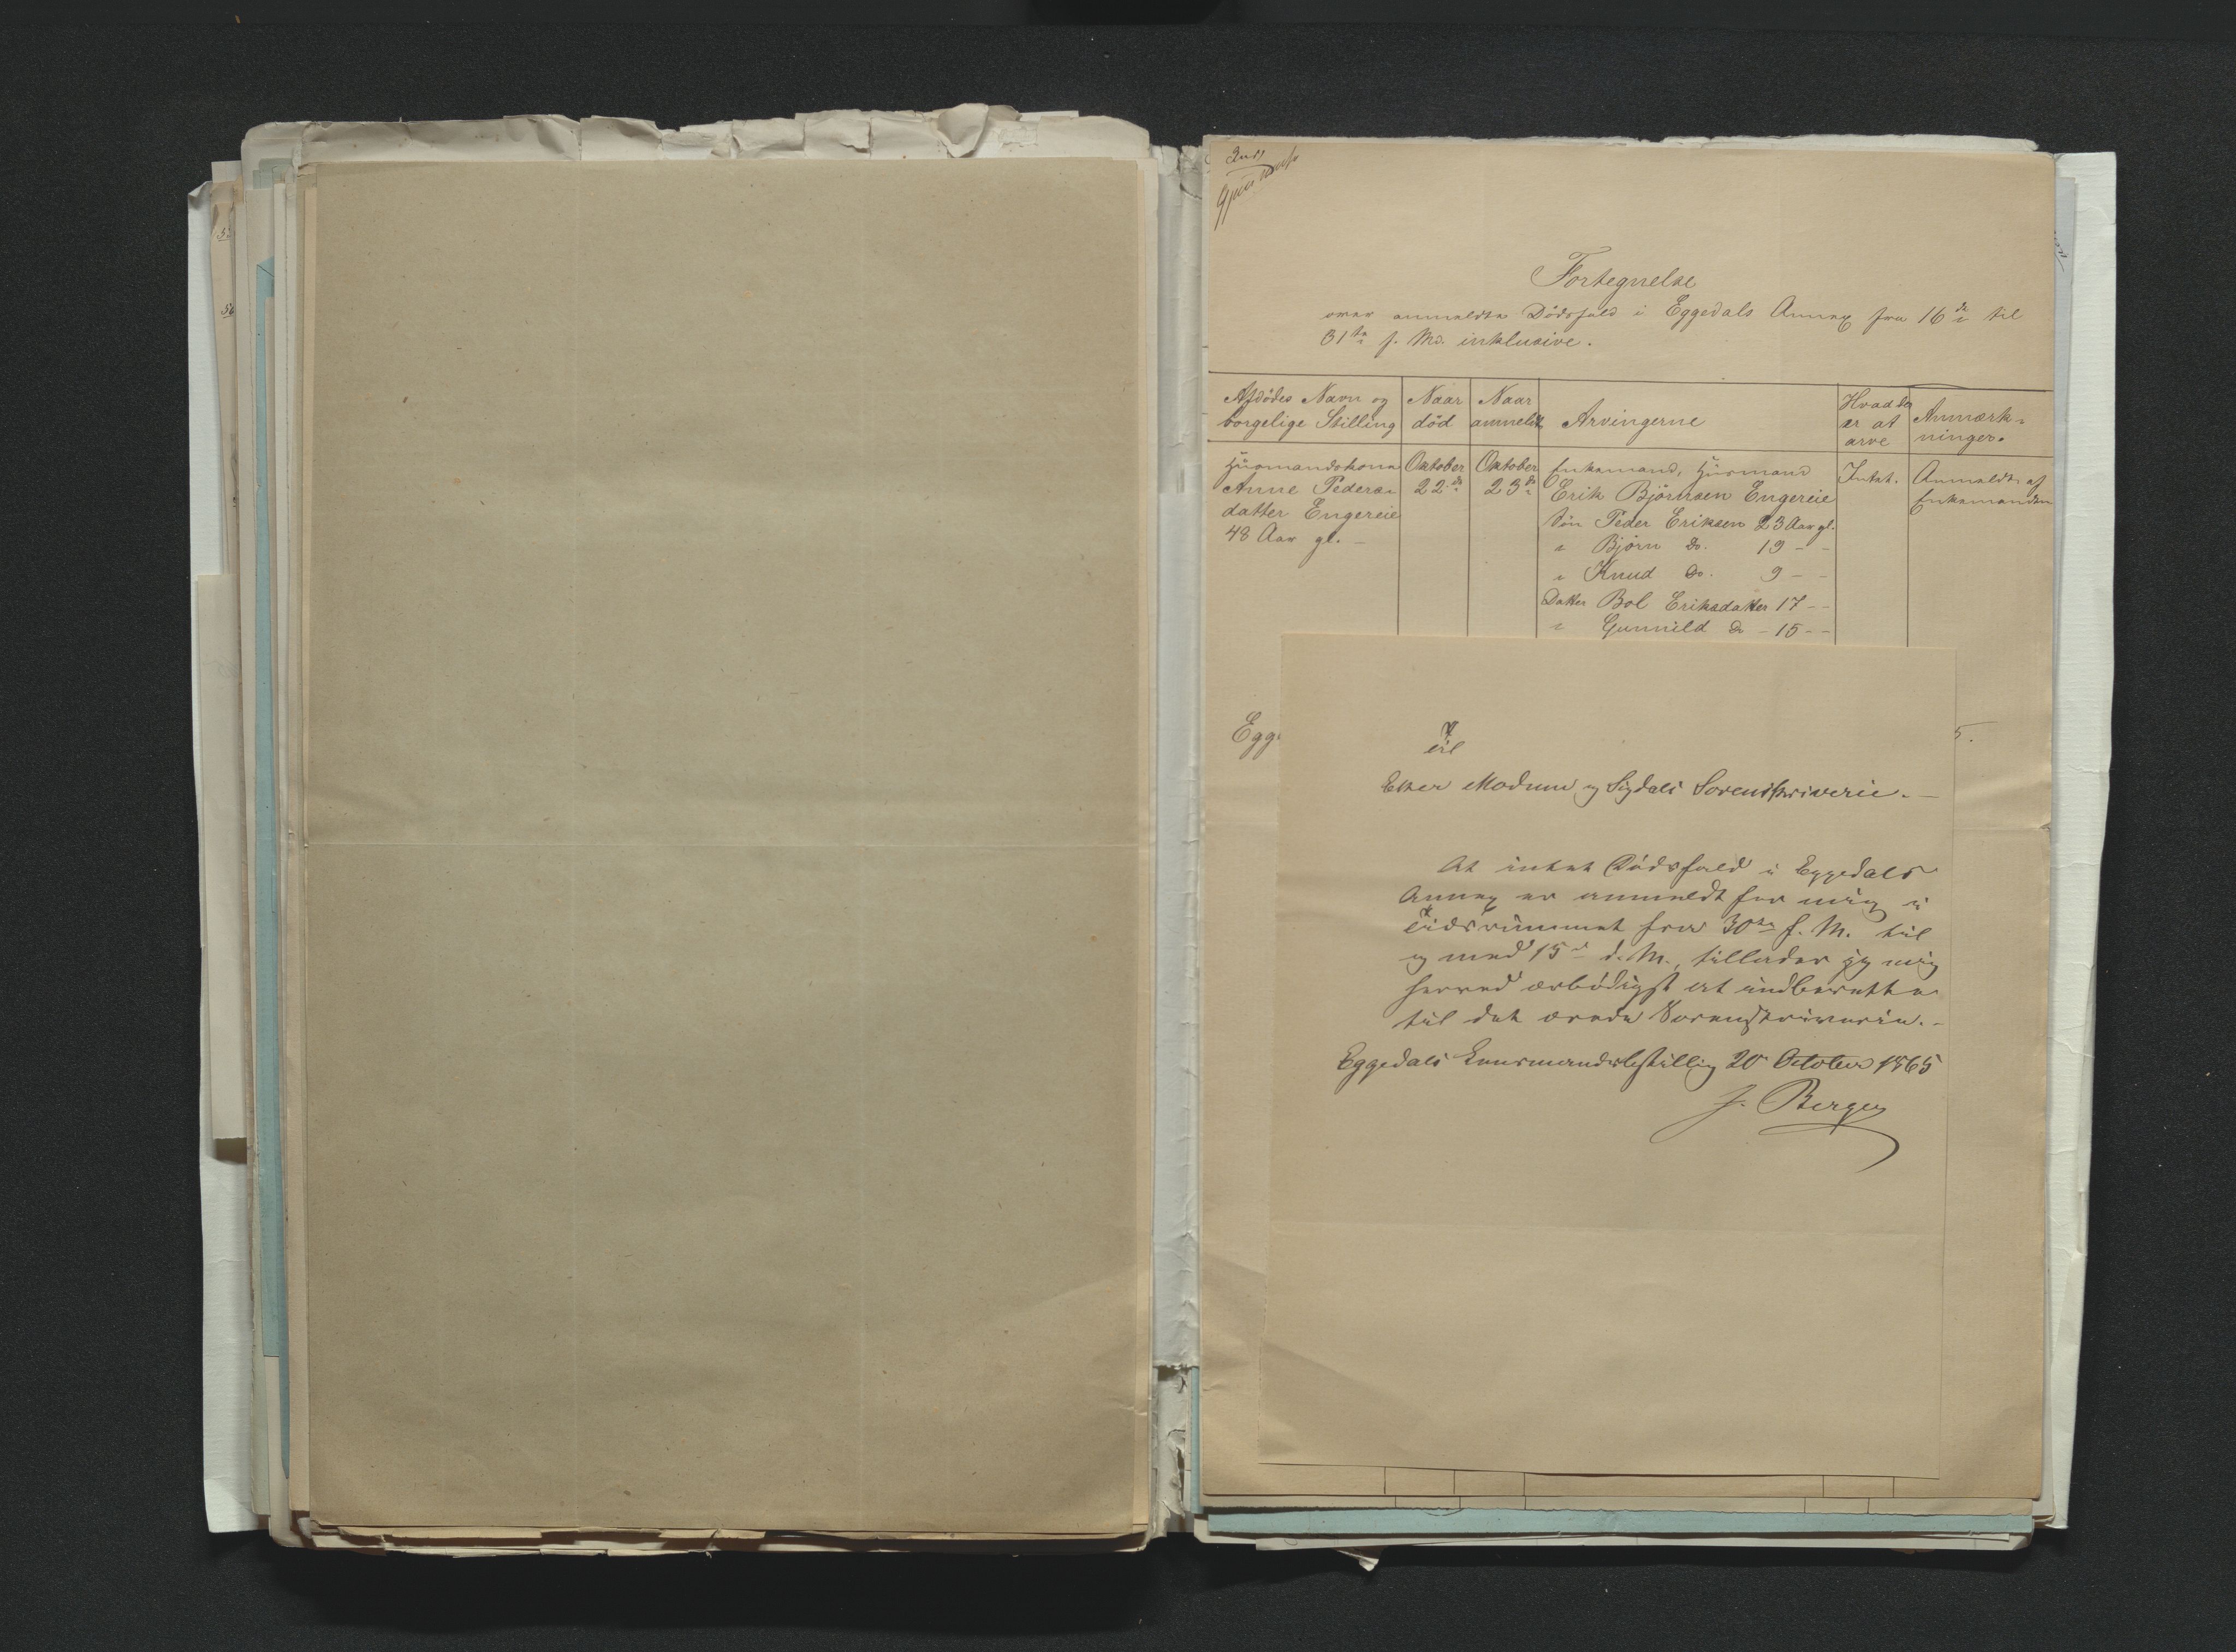 Fortegnelse
over anmeldte Dödsfald i Eggedals Annex fra 16de til
31te f. Md. inklusive.
Afdödes Navn og borgelige Stilling
Naar död
Naar anmeldt
Arvingerne
Hvad der er at arve
Anmærkninger.
Huusmandskone
Anne Peders-
datter Engereie
48 Aar gl. –
Oktober
22de
Oktober
23de
Enkemand, Huusmand
Erik Björnsen Engereie
Sön Peder Eriksen 23 Aar gl.
" Björn do. 19 – –
" Knud do. 9 – –
Datter Bol Eriksdatter 17 – –
" Gunnild do – 15 – –
Intet.
Anmeldt af
Enkemanden
Egge
5.
Til
Eker Modum og Sigdals Sorenskriverie. –
At intet Dödsfald i Eggedals
Annex er anmeldt for mig i
Tidsrummet fra 30te f. M. til
og med 15de d. M., tillader jeg mig
herved ærbödigst at indberette
til det ærede Sorenskriverie. –
Eggedals Lensmandsbestilling 20 October 1865
J. Bergen